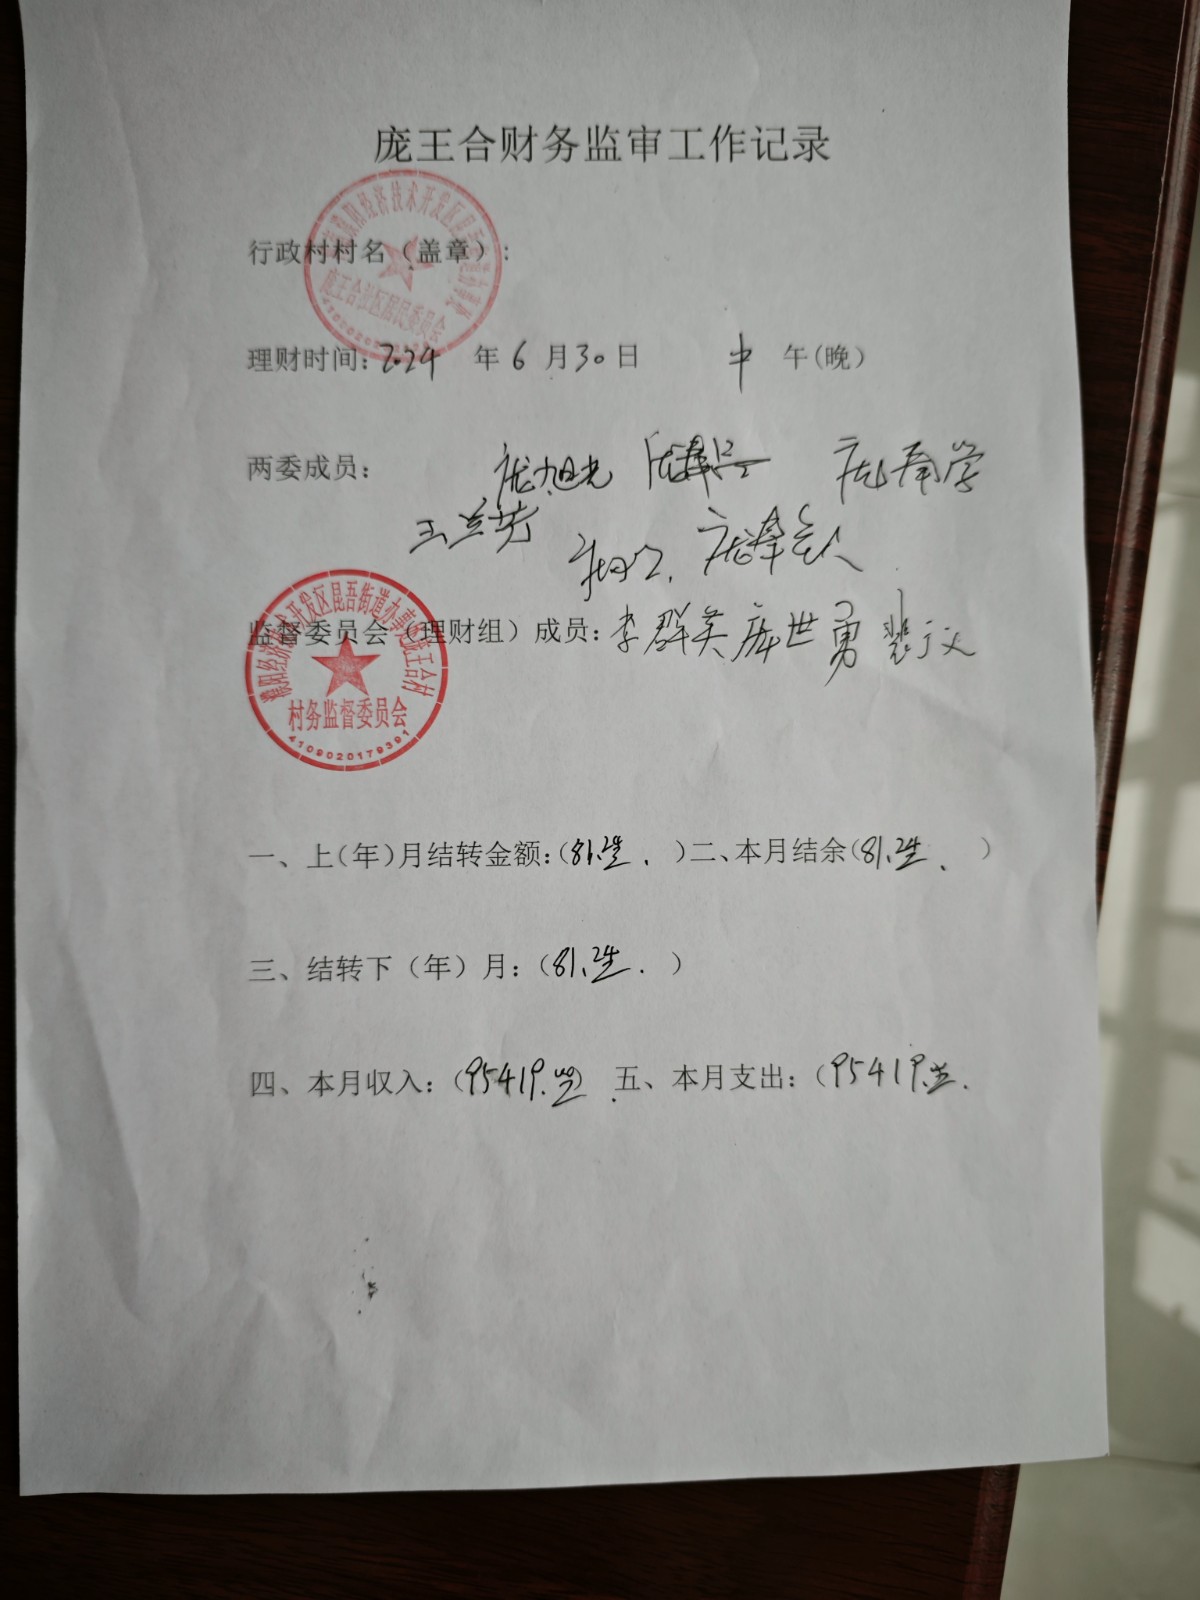 庞王合财务监审工作记录
行政村村名（盖章）:
庞王合社区居民委员会
理财时间: 2024 年 6 月 30 日 中 午(晚）
两委成员: 庞旭光 庞学
王兰芳
监督委员会（理财组）成员: 李群英 庞世勇
濮阳经济技术开发区昆吾街道办事处庞王合村
村务监督委员会
4109020179391
一、上(年)月结转金额:(81.2 )二、本月结余(81.2 )
三、结转下（年）月:（81.2 ）
四、本月收入:（95419. ） 五、本月支出:（95419.